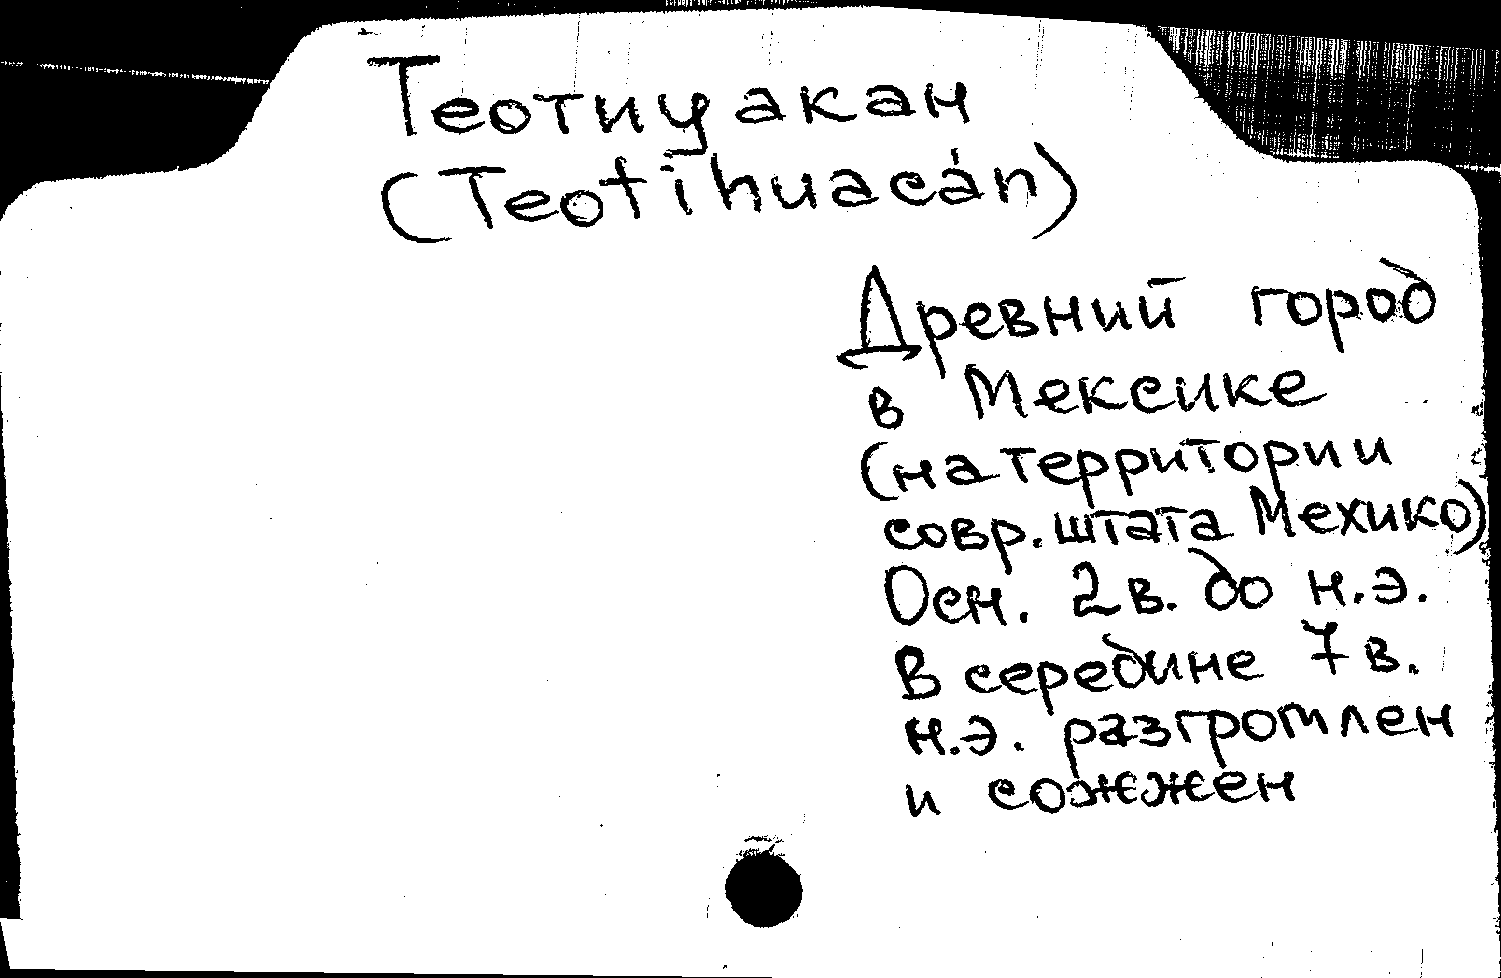 Теотиуакан
(Teotihuacán)
Древний город
в Мексике
(на территории
совр. штата Мехико)
Осн. 2 в. до н.э.
В середине 7 в.
н.э. разгромлен
и сожжен